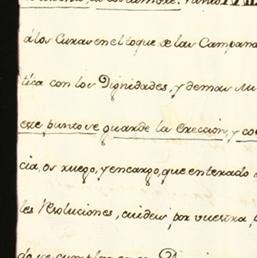 á los Curas en el toque de las Campana
tica con los Dignidades, y demas
este punto se guarde la Ereccion, y co
cia, os ruego, y encargo, que enterado
les Resoluciones, cuideis por vuestra